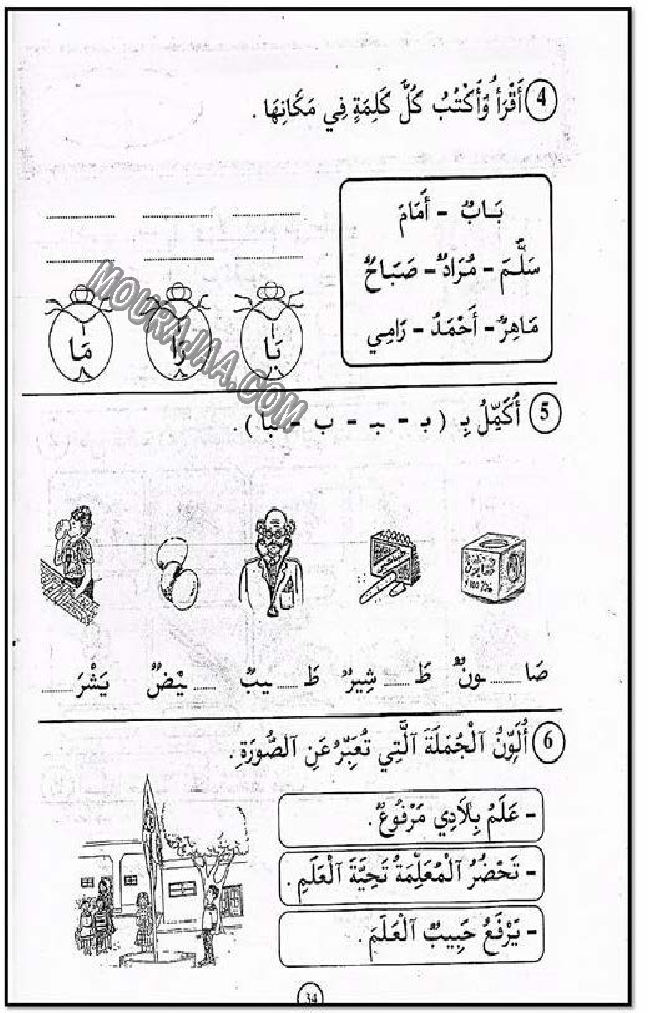 4 أَقْرَأُ وَأَكْتُبُ كُلَّ كَلِمَةٍ فِي مَكَانِهَا .
بَابٌ - أَمَامَ
سَلَّمَ - مُرَادٌ - صَبَاحٌ
مَاهِرٌ - أَحْمَدُ - رَامِي
بَا رَا مَا
MOURAJAA.COM
5 أُكَمِّلُ بِـ ( بـ - ـبـ - ب - ـبا ) .
صَا ...... ونٌ طَ ...... شِيرٌ طَ ...... يبٌ ...... يْضٌ يَشْرَ ......
6 أُلَوِّنُ ٱلْجُمْلَةَ ٱلَّتِي تُعَبِّرُ عَنِ ٱلصُّورَةِ .
- عَلَمُ بِلَادِي مَرْفُوعٌ .
- تَحْضُرُ ٱلْمُعَلِّمَةُ تَحِيَّةَ ٱلْعَلَمِ .
- يَرْفَعُ حَبِيبٌ ٱلْعَلَمَ .
34